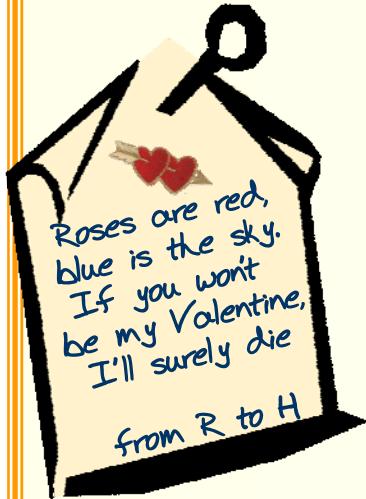 Roses are red,
blue is the sky.
If you won't
be my Valentine,
I'll surely die
from R to H